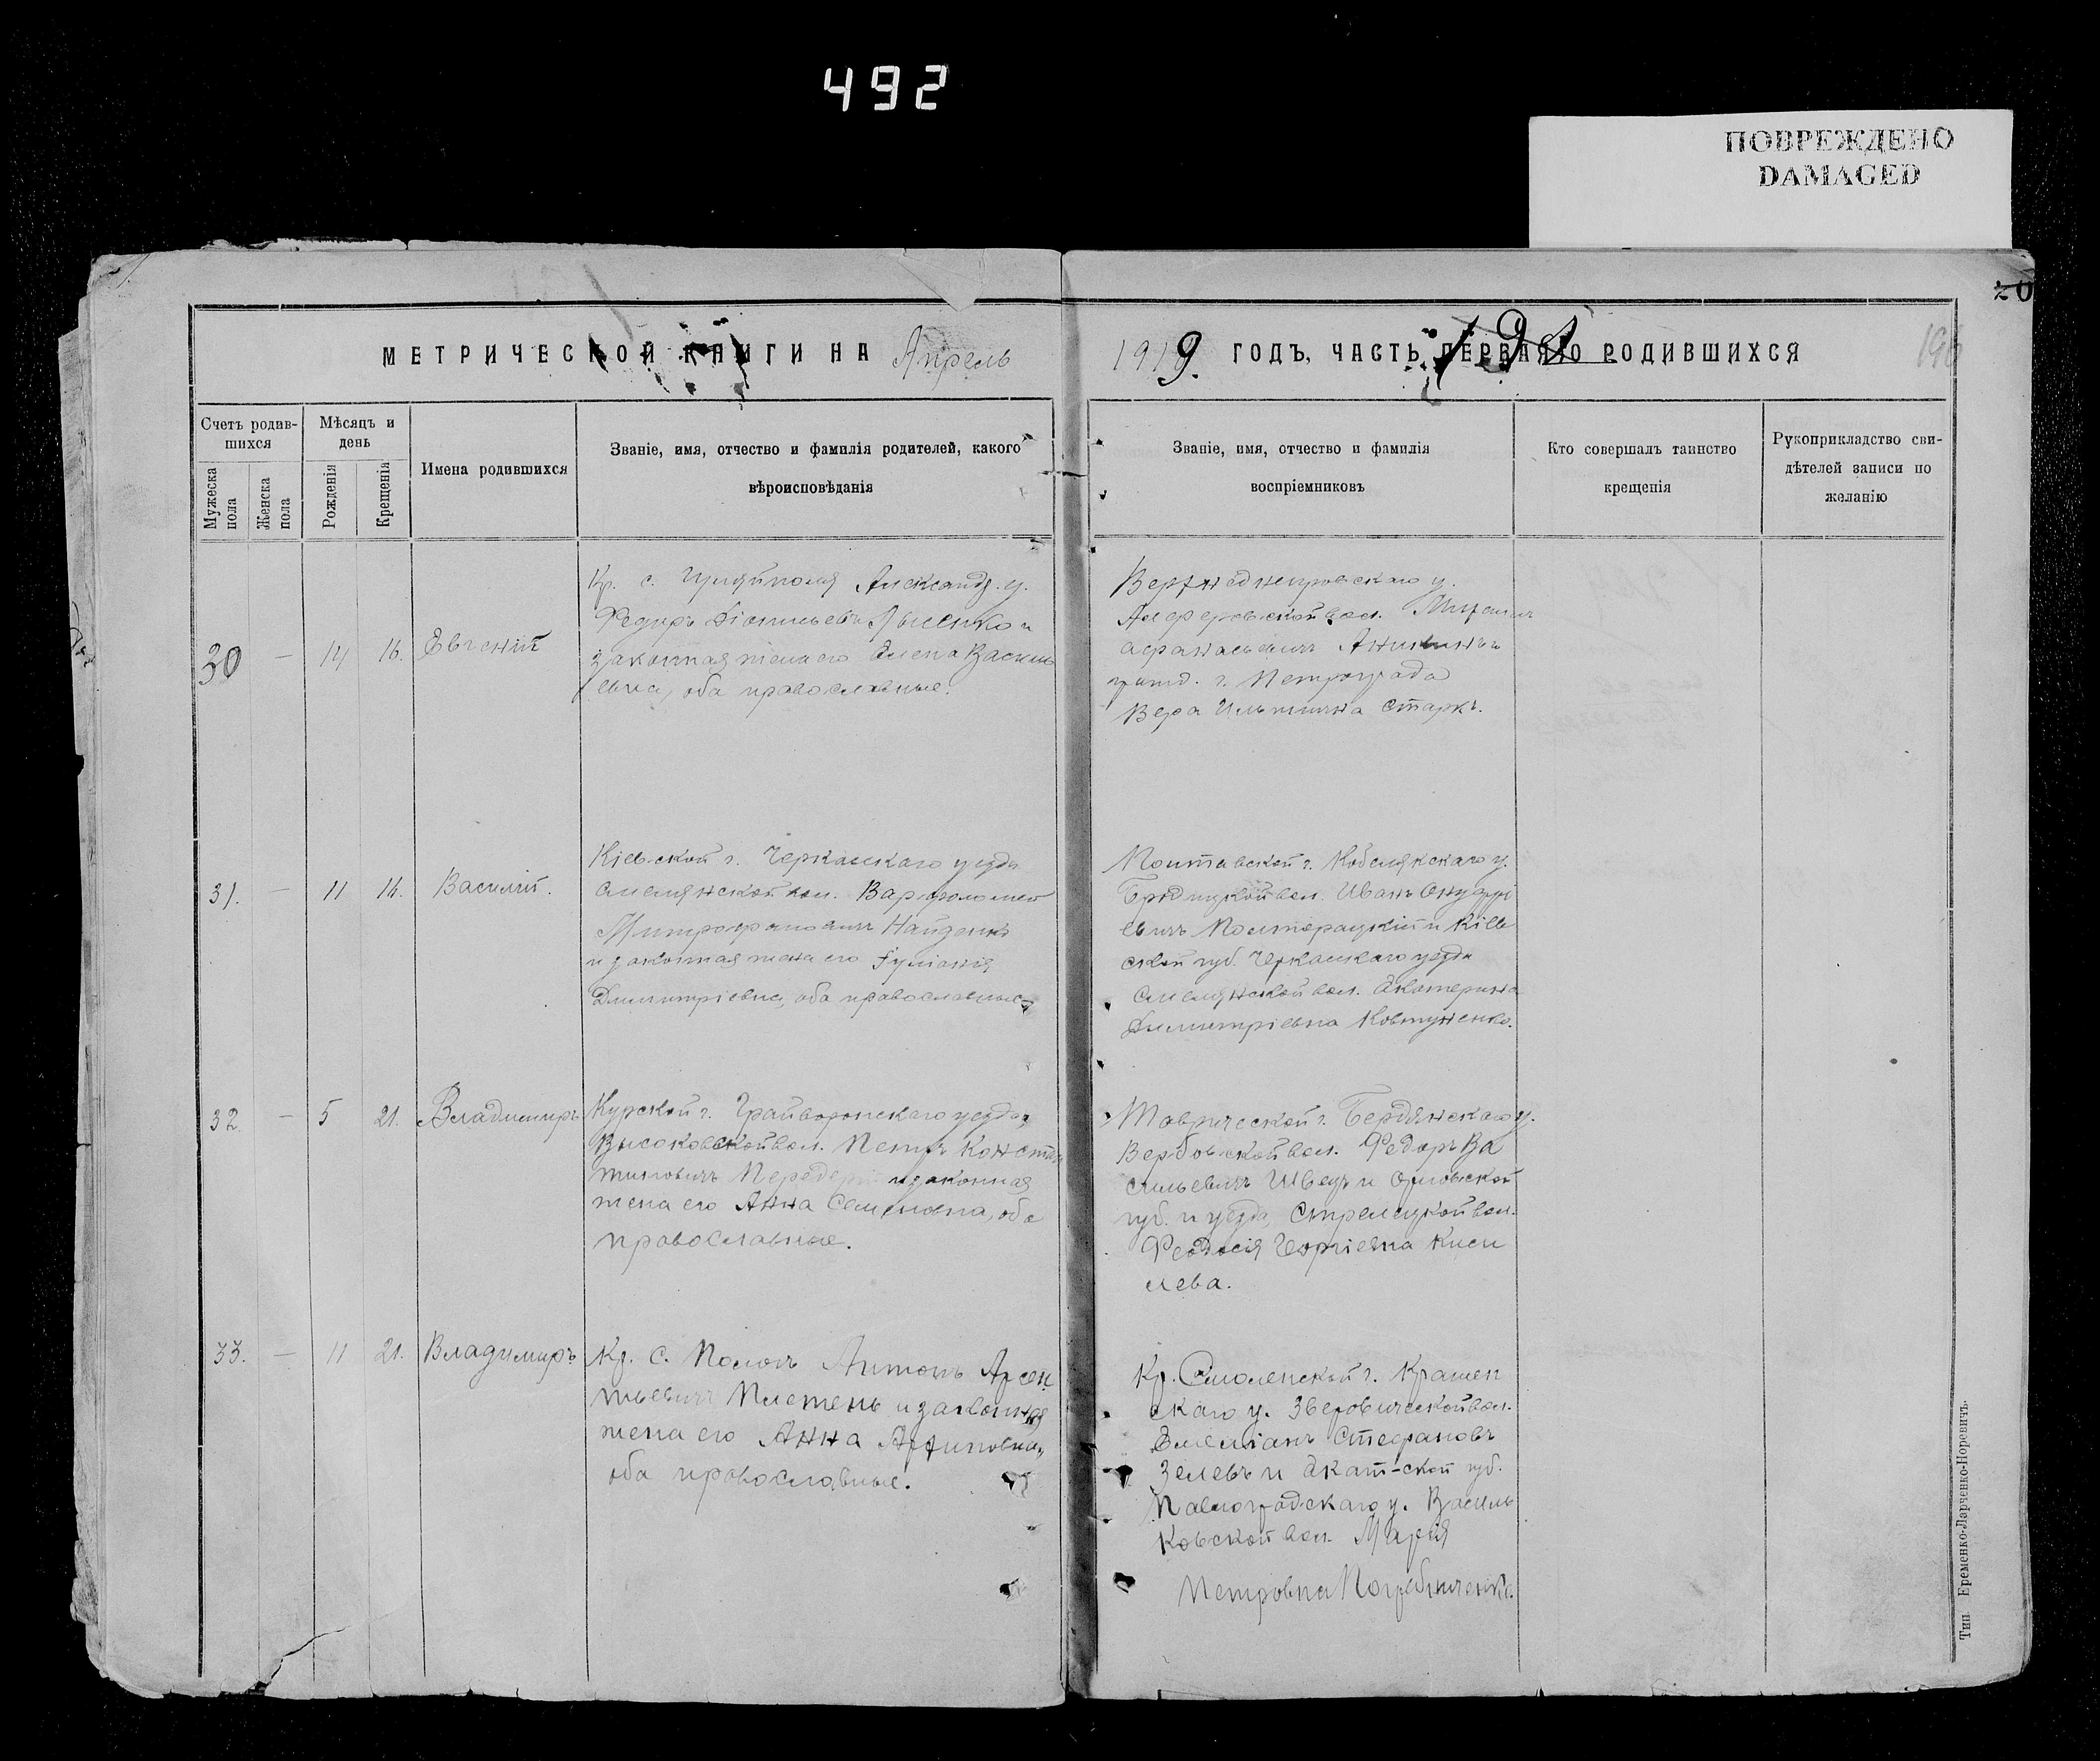 492
ПОВРЕЖДЕНО
DAMAGED
20
МЕТРИЧЕСКОЙ КНИГИ НА Апрель
1919 ГОДЪ, ЧАСТЬ ПЕРВАЯ О РОДИВШИХСЯ
196
Счетъ родив-
шихся
Мужеска
пола
Женска
пола
Мѣсяцъ и
день
Рожденія
Крещенія
Имена родившихся
Званіе, имя, отчество и фамилія родителей, какого
вѣроисповѣданія
Званіе, имя, отчество и фамилія
воспріемниковъ
Кто совершалъ таинство
крещенія
Рукоприкладство сви-
дѣтелей записи по
желанію
30 — 14 16. Евгеній
Кр. с. Гуляйполя Александр. у.
Федоръ Лысенко и
законная жена его Елена Василь
евна, оба православные.
Верхнеднепровскаго у.
Алферовской вол. Михаилъ
Афанасьевичъ
г. Петрограда
Вера Ильинична Старкъ.
31. — 11 16. Василій.
Кіевской г. Черкасскаго уезда
Смелянской вол. Варфоломей
Митрофановичъ Найденко
и законная жена его Іуліанія
Димитріевна, оба православные
Полтавской г. Кобелякскаго у.
вол. Иванъ Онуфрі
евичъ и Кіев
ской губ. Черкасскаго уезда
Смелянской вол. Екатерина
Димитріевна Ковтуненко.
32. — 5 21. Владимиръ
Курской г. Грайворонскаго уезда,
Высоковской вол. Петръ Констан
тиновичъ Передерій и законная
жена его Анна Семеновна, оба
православные.
Таврической г. Бердянскаго у.
Вербовской вол. Федоръ Ва
сильевичъ Швецъ и Орловской
губ. и уезда, Стрелецкой вол.
Феодосія Георгіевна Кисе
лева.
33. — 11 21. Владимиръ
Кр. с. Пологъ Антонъ Арсен
тьевичъ Плетень и законная
жена его Анна
оба православные.
Кр. Смоленской г. Краснен
скаго у. Зверовичской вол.
Емеліанъ Стефановъ
Зелевъ и Екат-ской губ.
Павлоградскаго у. Василь
ковской вол. Марія
Петровна Погребниченко.
Тип. Еременко-Ларченко-Норевичъ.